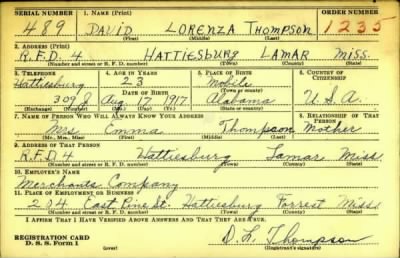 SERIAL NUMBER 1. NAME (Print) ORDER NUMBER
489 DAVID LORENZA THOMPSON 1235
(First) (Middle) (Last)
2. ADDRESS (Print)
R.F.D. 4 HATTIESBURG LAMAR MISS.
(Number and street or R. F. D. number) (Town) (County) (State)
3. TELEPHONE 4. AGE IN YEARS 5. PLACE OF BIRTH 6. COUNTRY OF CITIZENSHIP
Hattiesburg 23 Mobile
DATE OF BIRTH (Town or county)
309 J Aug 17 1917 Alabama U.S.A.
(Exchange) (Number) (Mo.) (Day) (Yr.) (State or country)
7. NAME OF PERSON WHO WILL ALWAYS KNOW YOUR ADDRESS 8. RELATIONSHIP OF THAT PERSON
Mrs. Emma Thompson Mother
(Mr., Mrs., Miss) (First) (Middle) (Last)
9. ADDRESS OF THAT PERSON
R.F.D 4 Hattiesburg Lamar Miss
(Number and street or R. F. D. number) (Town) (County) (State)
10. EMPLOYER'S NAME
Merchants Company
11. PLACE OF EMPLOYMENT OR BUSINESS
204 East Pine St. Hattiesburg Forrest Miss
(Number and street or R. F. D. number) (Town) (County) (State)
I AFFIRM THAT I HAVE VERIFIED ABOVE ANSWERS AND THAT THEY ARE TRUE.
REGISTRATION CARD
D. S. S. Form 1 D. L. Thompson
(Registrant's signature)